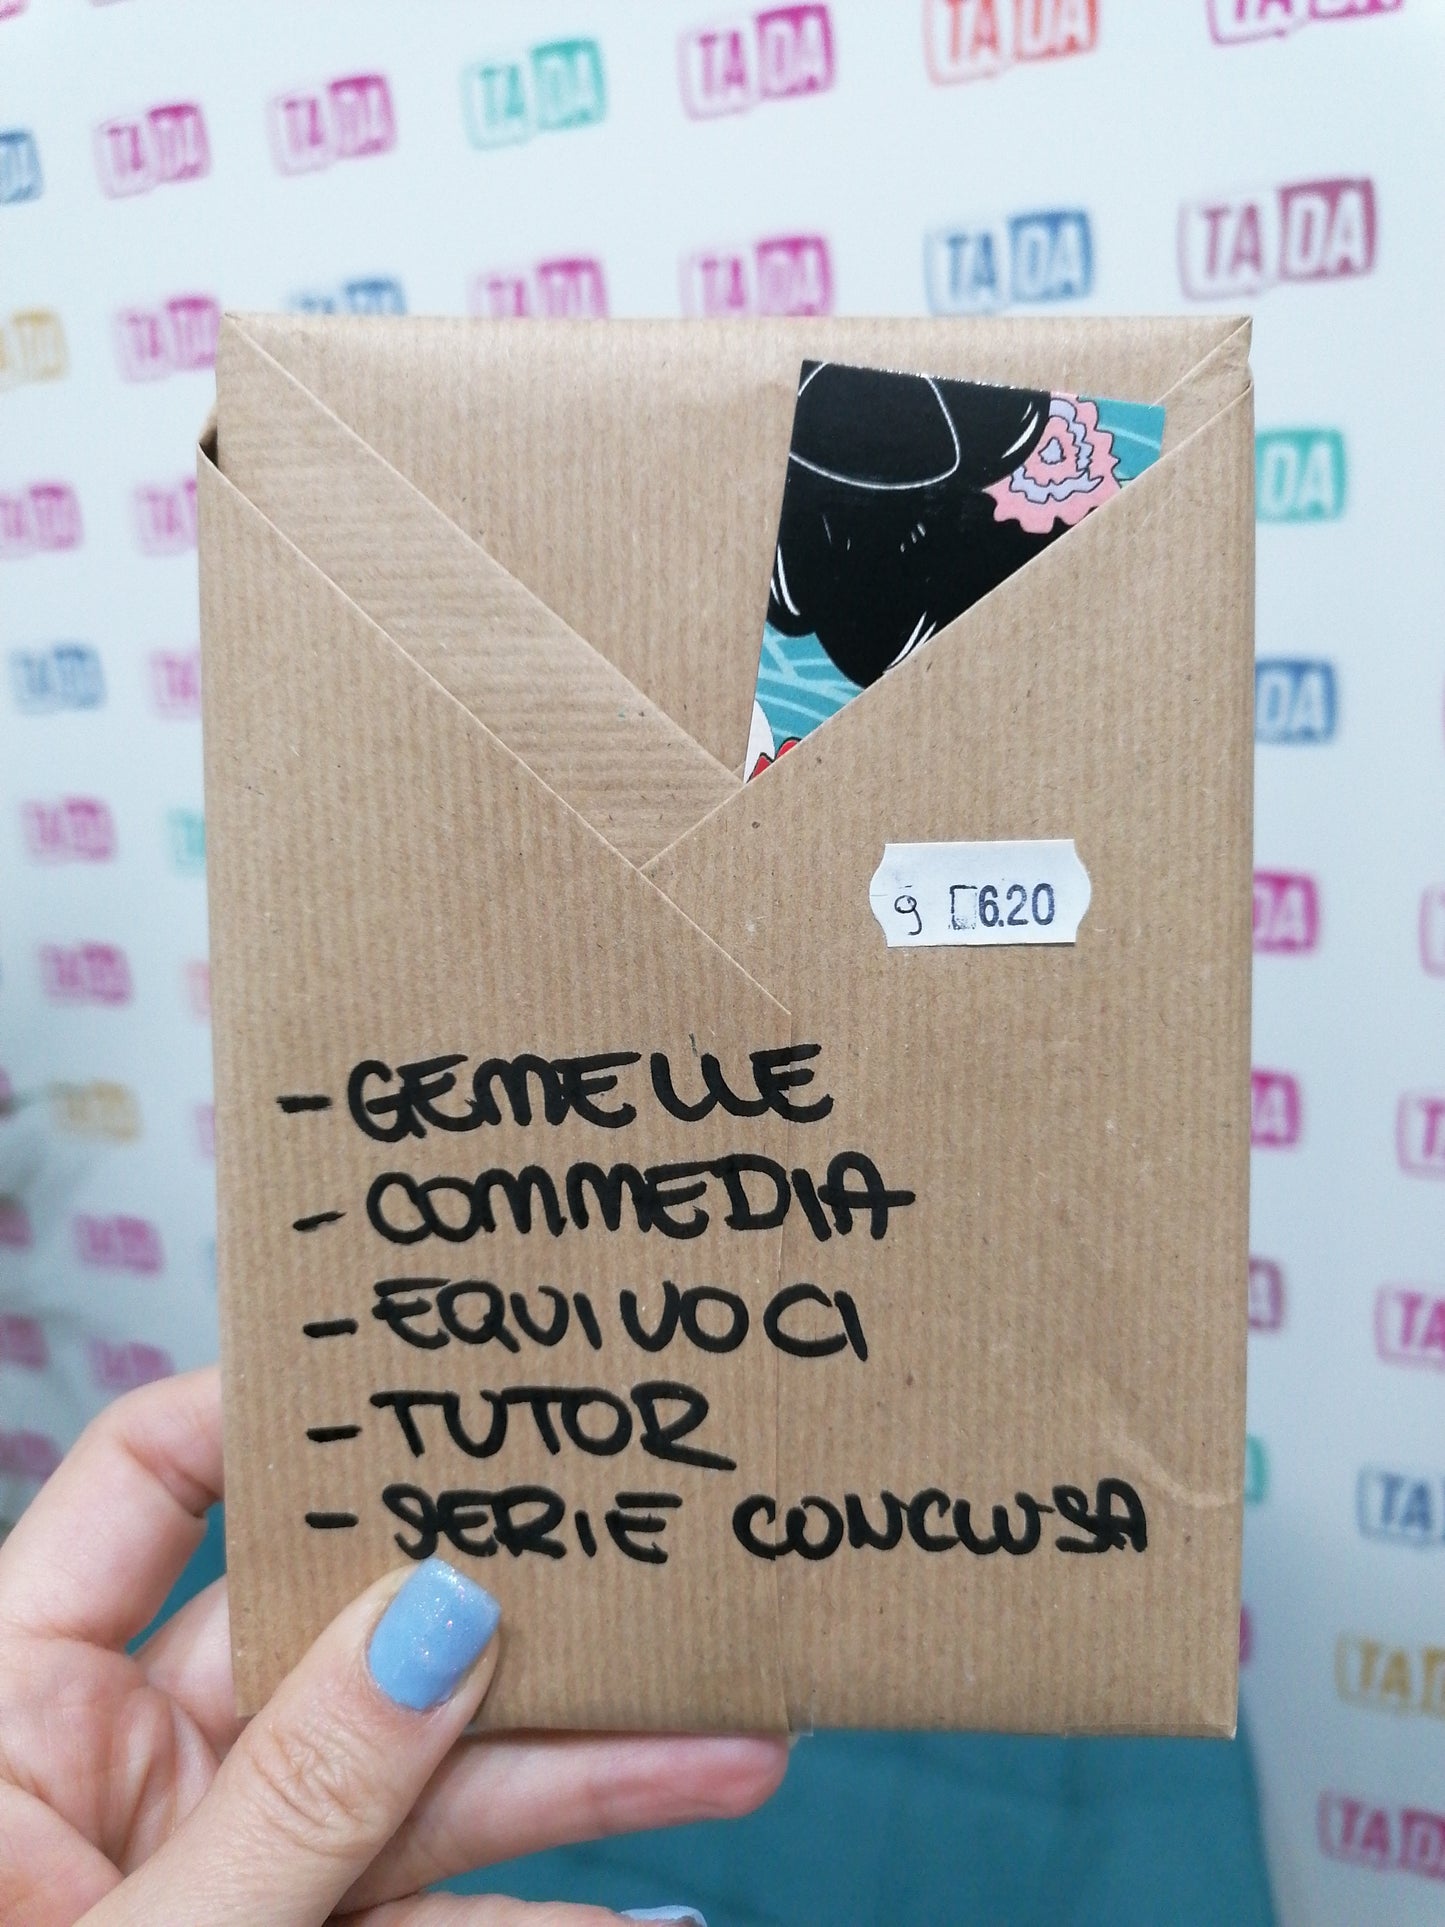 TADA TADA TADA TADA TADA TADA
DA TADA TADA TADA TADA TADA TADA
9 6.20
- GEMELLE
- COMMEDIA
- EQUIVOCI
- TUTOR
- SERIE CONCLUSA